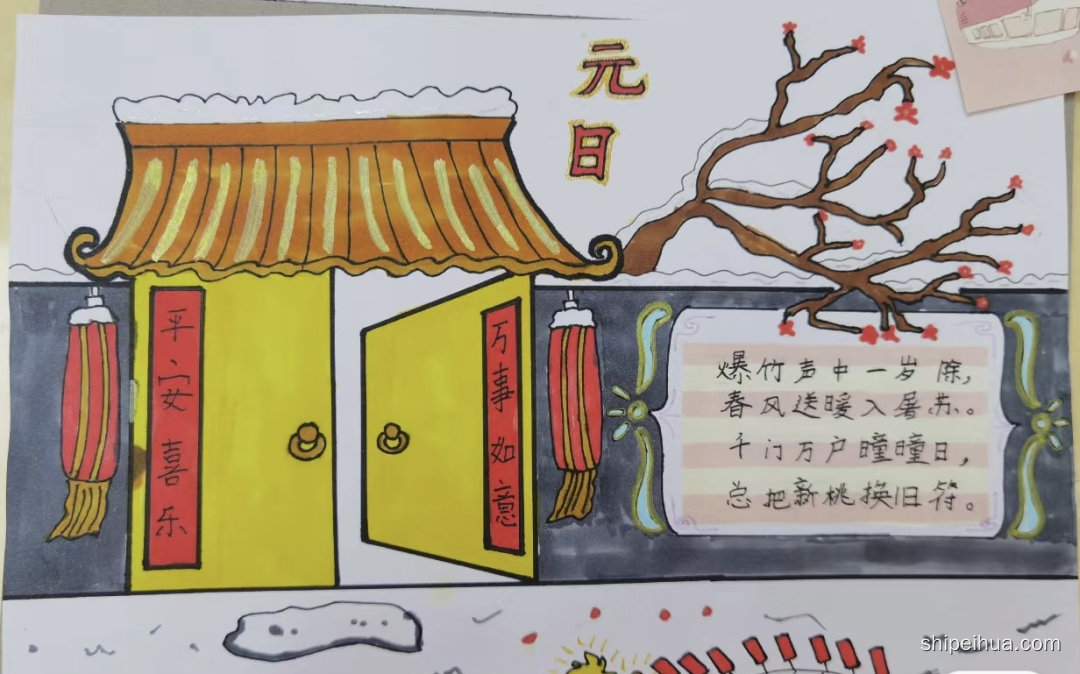 元日
平安喜乐
万事如意
爆竹声中一岁除,
春风送暖入屠苏。
千门万户曈曈日,
总把新桃换旧符。
shipeihua.com